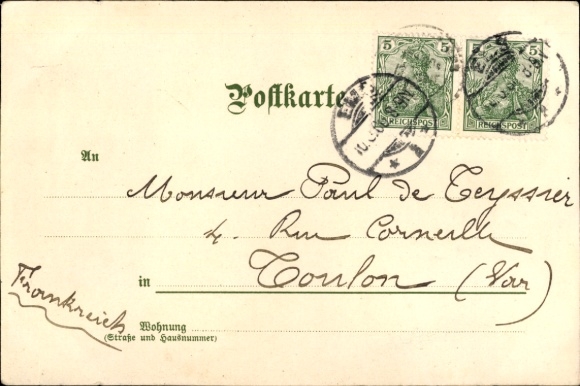 5 5
REICHSPOST REICHSPOST
Postkarte
EMS
An
Monsieur Paul de Teyssier
4. Rue Corneille
in Toulon (Var)
Frankreich
Wohnung
(Straße und Hausnummer)